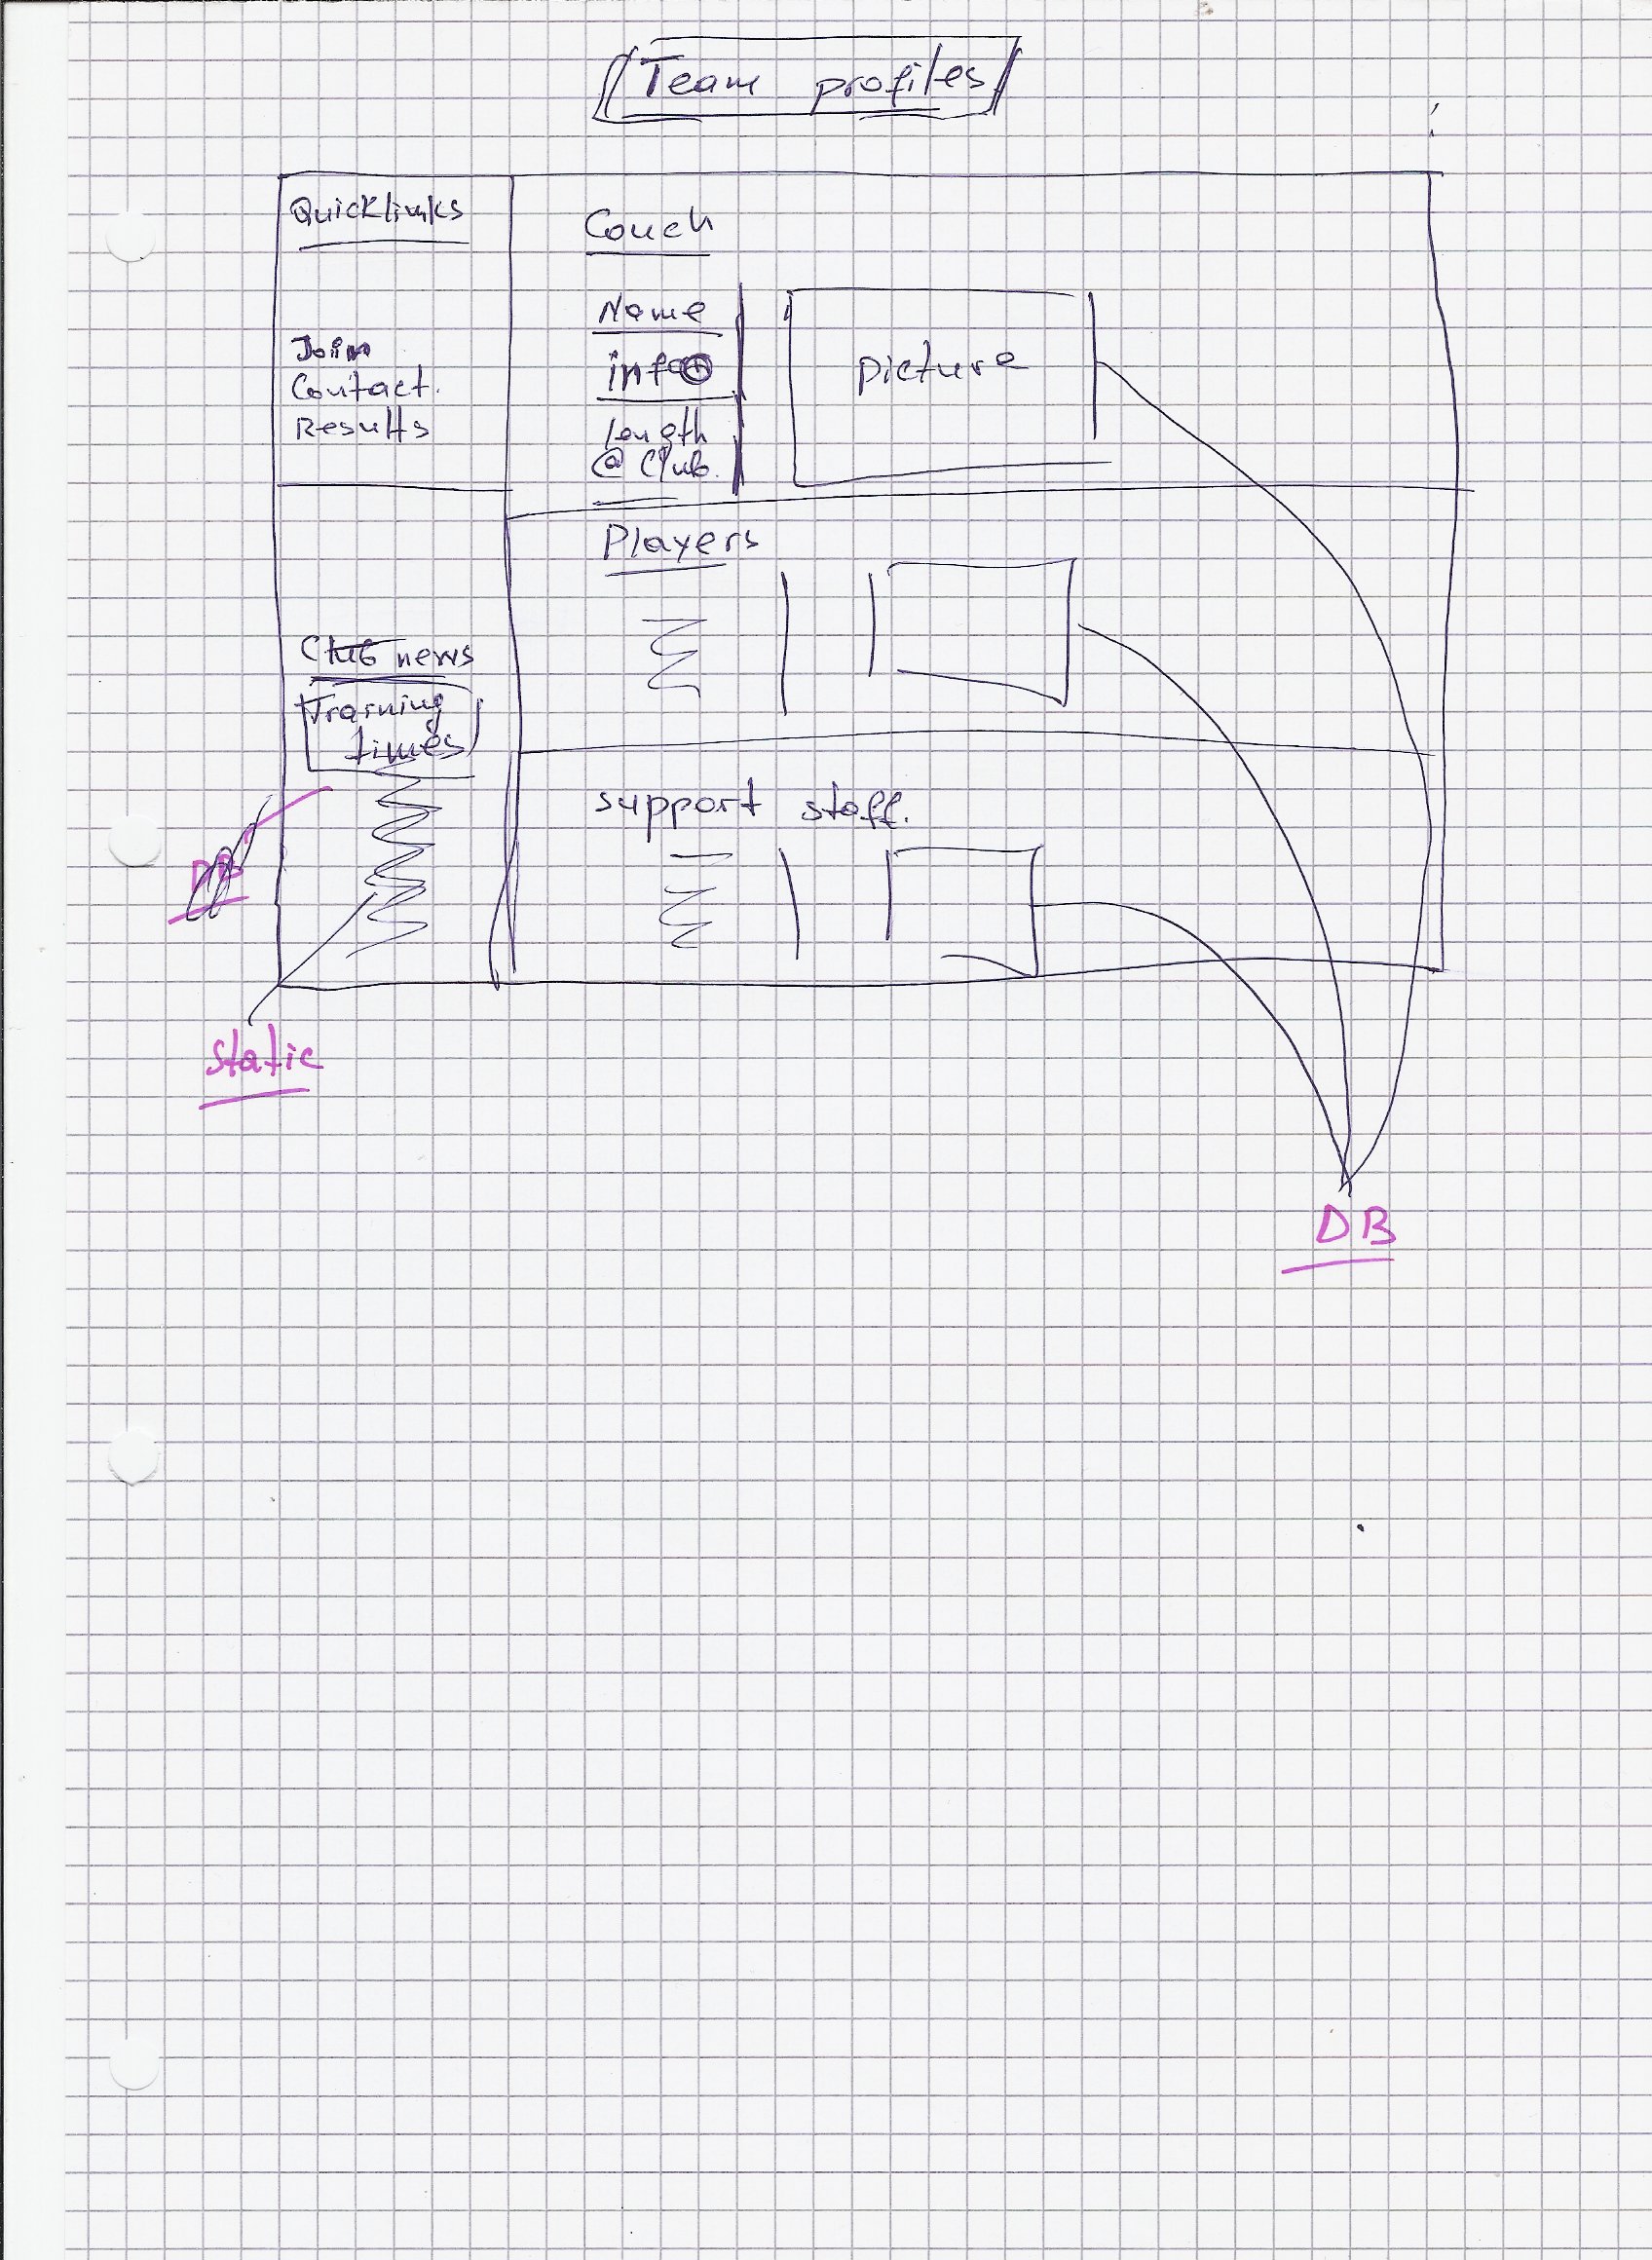 Team profiles
Quicklinks
Join
Contact.
Results
Club news
Training
times
DB
static
Couch
Name
info
length
@ Club.
picture
Players
support staff.
DB